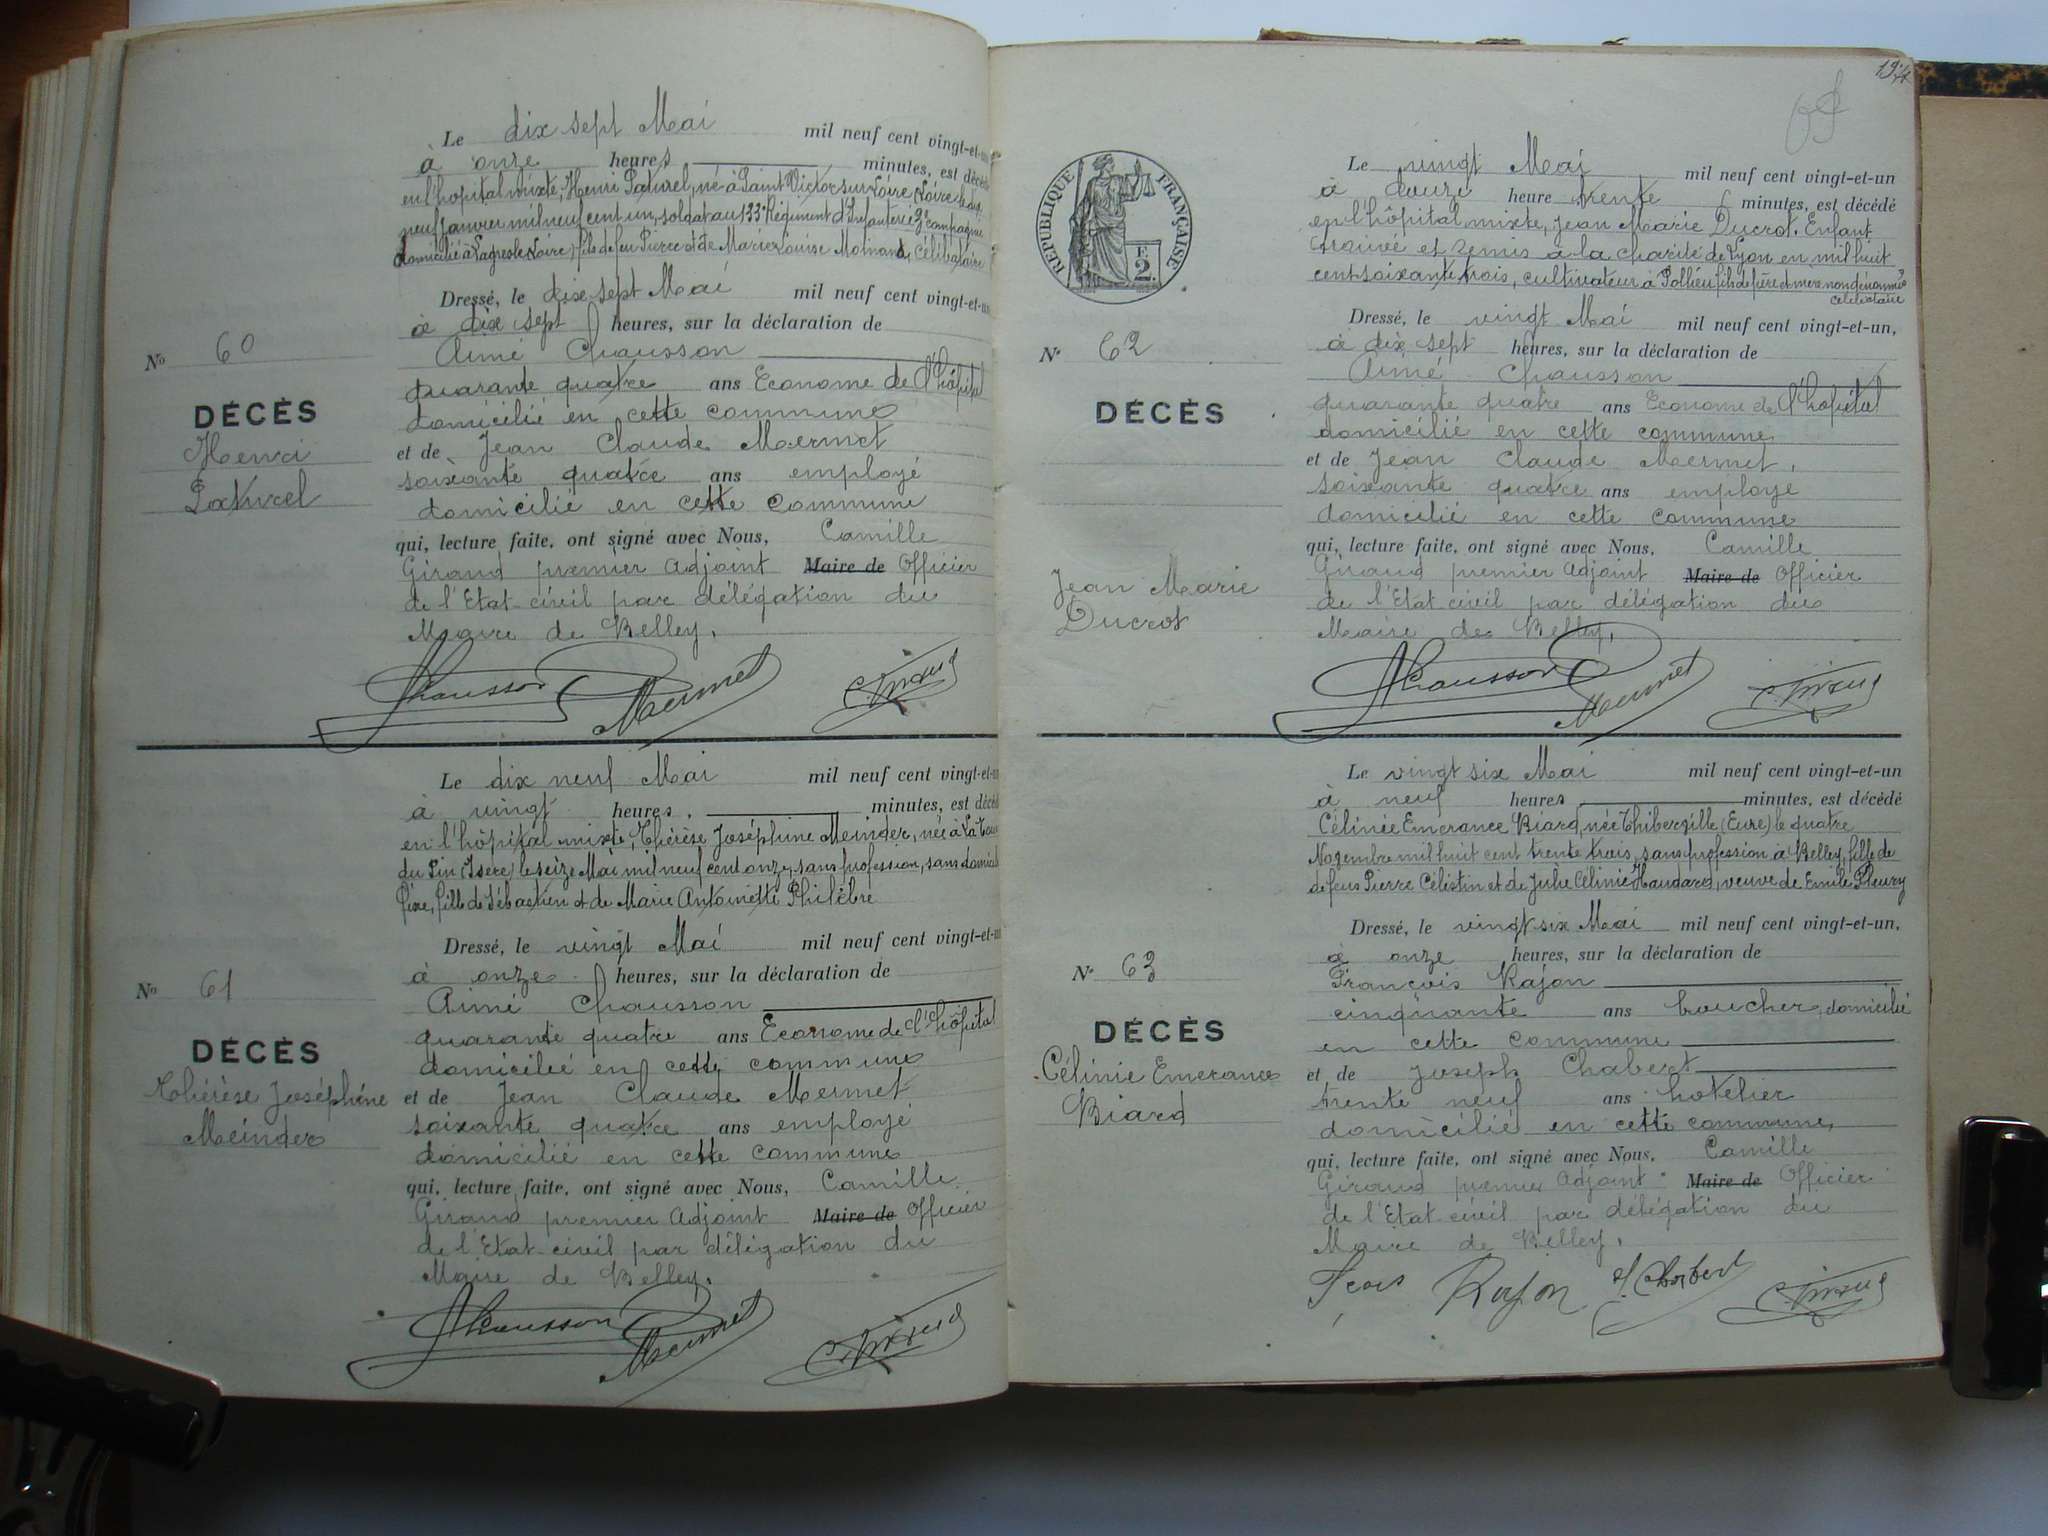 Le dix sept Mai mil neuf cent vingt-et-un
à onze heures minutes, est décédé
en l'hôpital mixte, Henri Paturel, né à Saint Victor sur Loire (Loire) le dix
neuf Janvier mil neuf cent un, soldat au 133e Régiment d'Infanterie 3e compagnie
domicilié à Lagresle (Loire) fils de feu Pierre et de Marie Louise Molnard, célibataire
Dressé, le dix sept Mai mil neuf cent vingt-et-un
à dix sept heures, sur la déclaration de
Aimé Chausson
quarante quatre ans Econome de l'hôpital
domicilié en cette commune
et de Jean Claude Mermet
soixante quatre ans employé
domicilié en cette commune
qui, lecture faite, ont signé avec Nous, Camille
Giraud premier Adjoint Maire de Officier
de l'Etat-civil par délégation du
Maire de Belley.
No 60
DÉCÈS
Henri
Paturel
Chausson Mermet C. Giraud
Le dix neuf Mai mil neuf cent vingt-et-un
à vingt heures, minutes, est décédé
en l'hôpital mixte, Thérèse Joséphine Meinder, née à La Tour
du Pin (Isère) le seize Mai mil neuf cent onze, sans profession, sans domicile
fixe, fille de Sébastien et de Marie Antoinette Philèbre
Dressé, le vingt Mai mil neuf cent vingt-et-un
à onze heures, sur la déclaration de
Aimé Chausson
quarante quatre ans Econome de l'hôpital
domicilié en cette commune
et de Jean Claude Mermet
soixante quatre ans employé
domicilié en cette commune
qui, lecture faite, ont signé avec Nous, Camille
Giraud premier Adjoint Maire de Officier
de l'Etat-civil par délégation du
Maire de Belley.
No 61
DÉCÈS
Thérèse Joséphine
Meinder
Chausson Mermet C. Giraud
RÉPUBLIQUE FRANÇAISE
F
2
Le vingt Mai mil neuf cent vingt-et-un
à douze heure trente minutes, est décédé
en l'hôpital mixte, Jean Marie Ducrot. Enfant
trouvé et remis à la charité de Lyon en mil huit
cent soixante trois, cultivateur à Pollieu fils de père et mère non dénommés
célibataire
Dressé, le vingt Mai mil neuf cent vingt-et-un,
à dix sept heures, sur la déclaration de
Aimé Chausson
quarante quatre ans Econome de l'hôpital
domicilié en cette commune
et de Jean Claude Mermet,
soixante quatre ans employé
domicilié en cette commune
qui, lecture faite, ont signé avec Nous, Camille
Giraud premier Adjoint Maire de Officier
de l'Etat-civil par délégation du
Maire de Belley.
No 62
DÉCÈS
Jean Marie
Ducrot
Chausson Mermet C. Giraud
Le vingt six Mai mil neuf cent vingt-et-un
à neuf heures minutes, est décédé
Célinie Emerance Biard, née Thiberville (Eure) le quatre
Novembre mil huit cent trente trois, sans profession à Belley, fille de
defeus Pierre Célestin et de Julie Célinie Haudard, veuve de Emile Fleury
Dressé, le vingt six Mai mil neuf cent vingt-et-un,
à onze heures, sur la déclaration de
François Rajon
cinquante ans boucher, domicilié
en cette commune
et de Joseph Chabert
trente neuf ans hotelier
domicilié en cette commune,
qui, lecture faite, ont signé avec Nous, Camille
Giraud premier Adjoint Maire de Officier
de l'Etat-civil par délégation du
Maire de Belley.
No 63
DÉCÈS
Célinie Emerance
Biard
Fcois Rajon J. Chabert C. Giraud